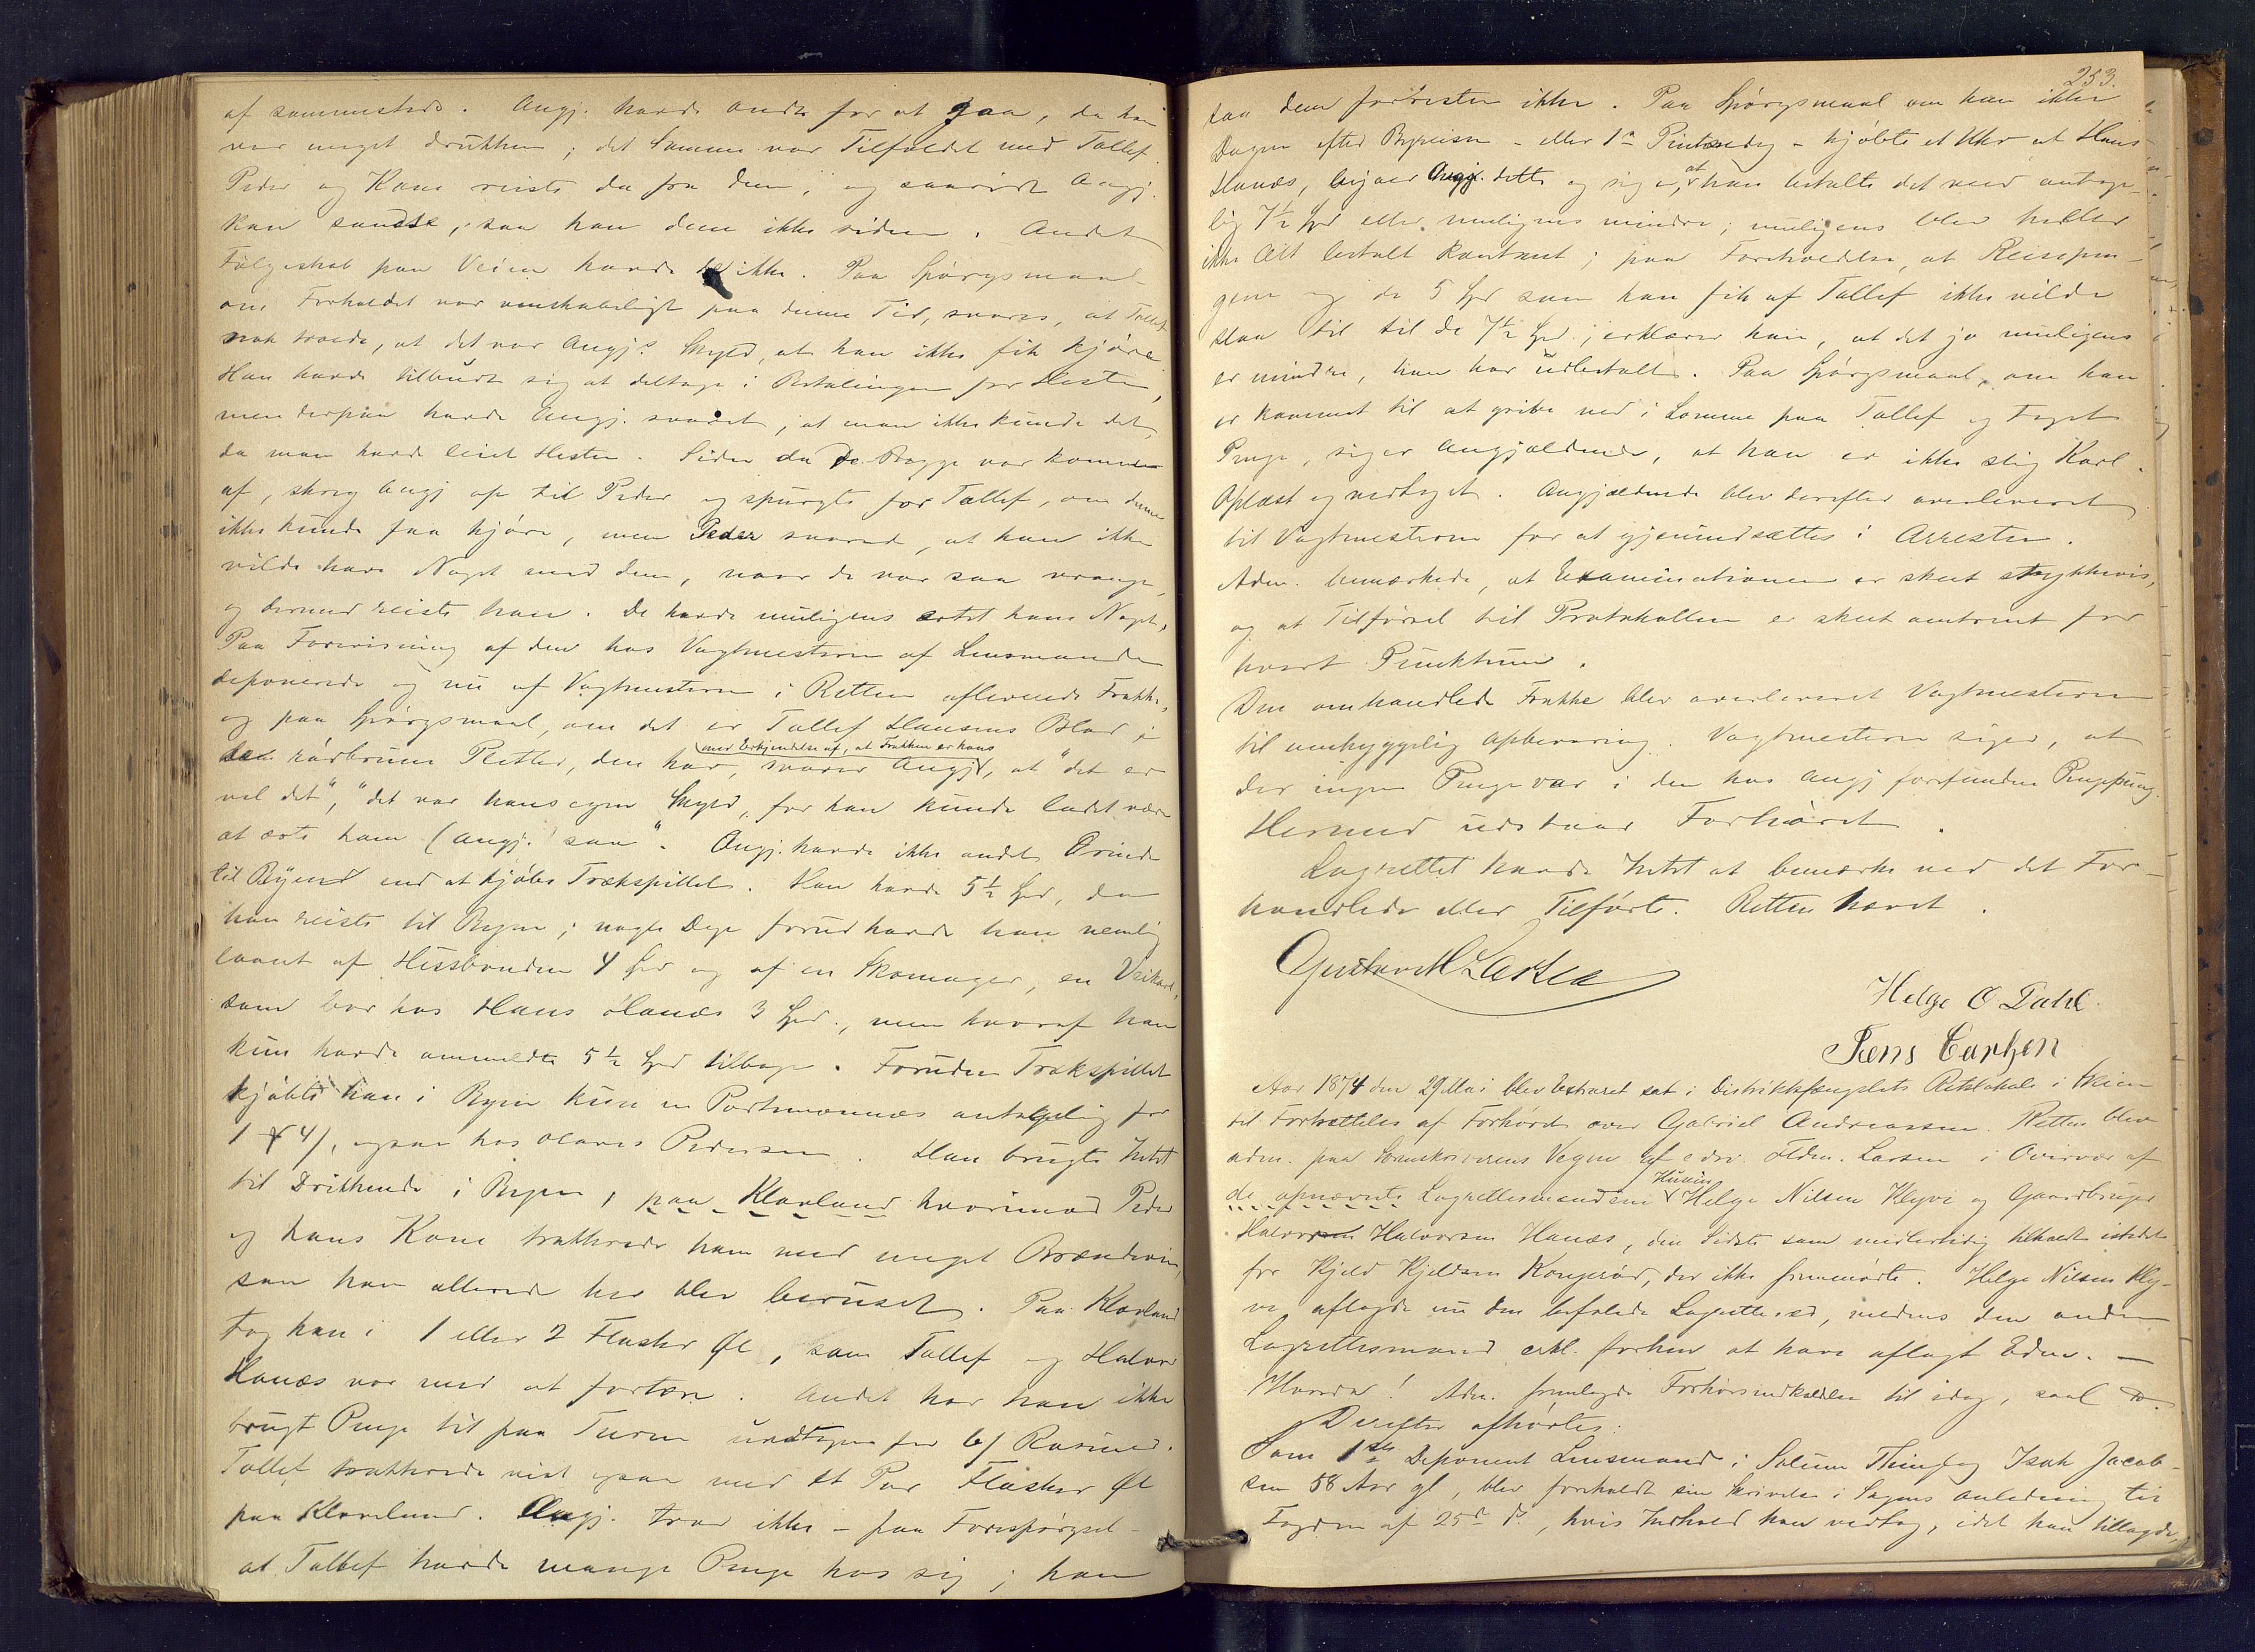 af sammesteds. Angj. havde ondt for at gaa, da han
var meget drukken; det Samme var Tilfældet med Tallef.
Peder og Kone reiste da fra dem, og saavidt Angj.
kan sandse, saa han dem ikke siden. Andet
Følgeskab paa Veien havde de ikke. Paa Spørgsmaal
om Forholdet var venskabeligt paa denne Tid, svares, at Tallef
nok troede, at det var Angj.s Skyld, at han ikke fik kjøre
Han havde tilbudt sig at deltage i Betalingen for Hesten,
men derpaa havde Angj. svaret, at man ikke kunde det,
da man havde leiet Hesten. Siden da de Begge var kommen
af, skreg Angj op til Peder og spurgte for Tallef, om denne
ikke kunde faa kjøre, men Peder svarede, at han ikke
vilde have Noget med dem, naar de var saa vrange,
og dermed reiste han. De havde muligens ertet hans Noget.
Paa Forevisning af den hos Vagtmesteren af Lensmanden
deponerede og nu af Vagtmesteren i Retten afleverede Frakke,
og paa Spørgsmaal, om det er Tallef Hansens Blod i
med Erkjendelse af, at Frakken er hans
de rødbrune Pletter, den har, svarer Angj, at "det er
vel det", "det var hans egen Skyld, for han kunde ladet være
at erte ham (angj.) saa". Angj. havde ikke andet Ærinde
til Byen end at kjøbe Trækspillet. Han havde 5½ Spd, da
han reiste til Byen; nogle Dage forud havde han nemlig
laant af Husbonden 4 Spd og af en Skomager, en
som bor hos Hans Hanæs 3 Spd., men hvoraf han
kun havde ommeldte 5½ Spd tilbage. Foruden Trækspillet
kjøbte han i Byen kun en Portemonnæ antagelig for
1 ₰ 4/, ogsaa hos Olaves Pedersen. Han brugte Intet
til Drikkende i Byen, paa Klovland hvorimod Peder
og hans Kone trakterede ham med meget Brændevin,
saa han allerede her blev beruset. Paa Klovland
tog han i 1 eller 2 Flasker Øl, som Tallef og Halvor
Hanæs var med at fortære. Andet har han ikke
brugt Penge til paa Turen undtagen for 6/ Rosiner.
Tallef trakterede vist ogsaa med et Par Flasker Øl
paa Klovelund. Angj. tror ikke - paa Forespørgsel -
at Tallef havde mange Penge hos sig; han
253.
saa dem forresten ikke. Paa Spørgsmaal om han ikke
Dagen efter Byreisen - eller 1ste Pintsedag - kjøbte et Uhr af Hans
Hanæs, bejaer Angj. dette og siger, at han betalte det med antage-
lig 7½ Spd eller muligens mindre; muligens blev heller
ikke Alt betalt kontant; paa Foreholdelse, at Reisepen-
gene og de 5 Spd som han fik af Tallef ikke vilde
slaa til til de 7½ Spd; erklærer han, at det jo muligens
er mindre, han har udbetalt. Paa Spørgsmaal, om han
er kommet til at gribe ned i Lomme paa Tallef og taget
Penge, siger Angjældende, at han er ikke slig Karl.
Oplæst og vedtaget. Angjældende blev derefter overleveret
til Vagtmesteren for at gjenindsættes i Arresten.
Adm. bemærkede, at Examinationen er skeet stykkevis,
og at Tilførsel til Protokollen er skeet omtrent for
hvert Punktum.
Den omhandlede Frakke blev overleveret Vagtmesteren
til omhyggelig Opbevaring. Vagtmesteren siger, at
der ingen Penge var i den hos Angj forefundne Pengepung.
Hermed udstaar Forhøret.
Lagrettet havde Intet at bemærke ved det For-
handlede eller Tilførte. Retten hævet.
Gustav M Larsen
Helge O Dahl
Jens Carlsen
Aar 1874 den 29 Mai blev Extraret sat i Distriktsfængslets Retslokale i Skien
til Fortsættelse af Forhøret over Gabriel Andreassen. Retten blev
adm. paa Sorenskriverens Vegne af edsv. Fldm. Larsen i Overvær af
Husm.
de opnævnte Lagrettesmændene Helge Nilsen Klyve og Gaardbruger
Halvorsen Halvorsen Hanæs, den Sidste som midlertidig tilkaldt istedet
for Kjeld Kjeldsen Kongerød, der ikke fremmødte. Helge Nilsen Kly-
ve aflagde nu den befalede Lagrettesed, medens den anden
Lagrettesmand erkl. forhen at have aflagt Eden. —
Hvorda! Adm. fremlagde Forhørsindkaldelsen til idag, saal.
Derefter afhørtes:
Som 1ste Deponent Lensmand i Solum Thinglag Isak Jacob-
sen 58 Aar gl, blev foreholdt sin Skrivelse i Sagens Anledning til
Fogden af 25de ds, hvis Indhold han vedtog, idet han tillagde,